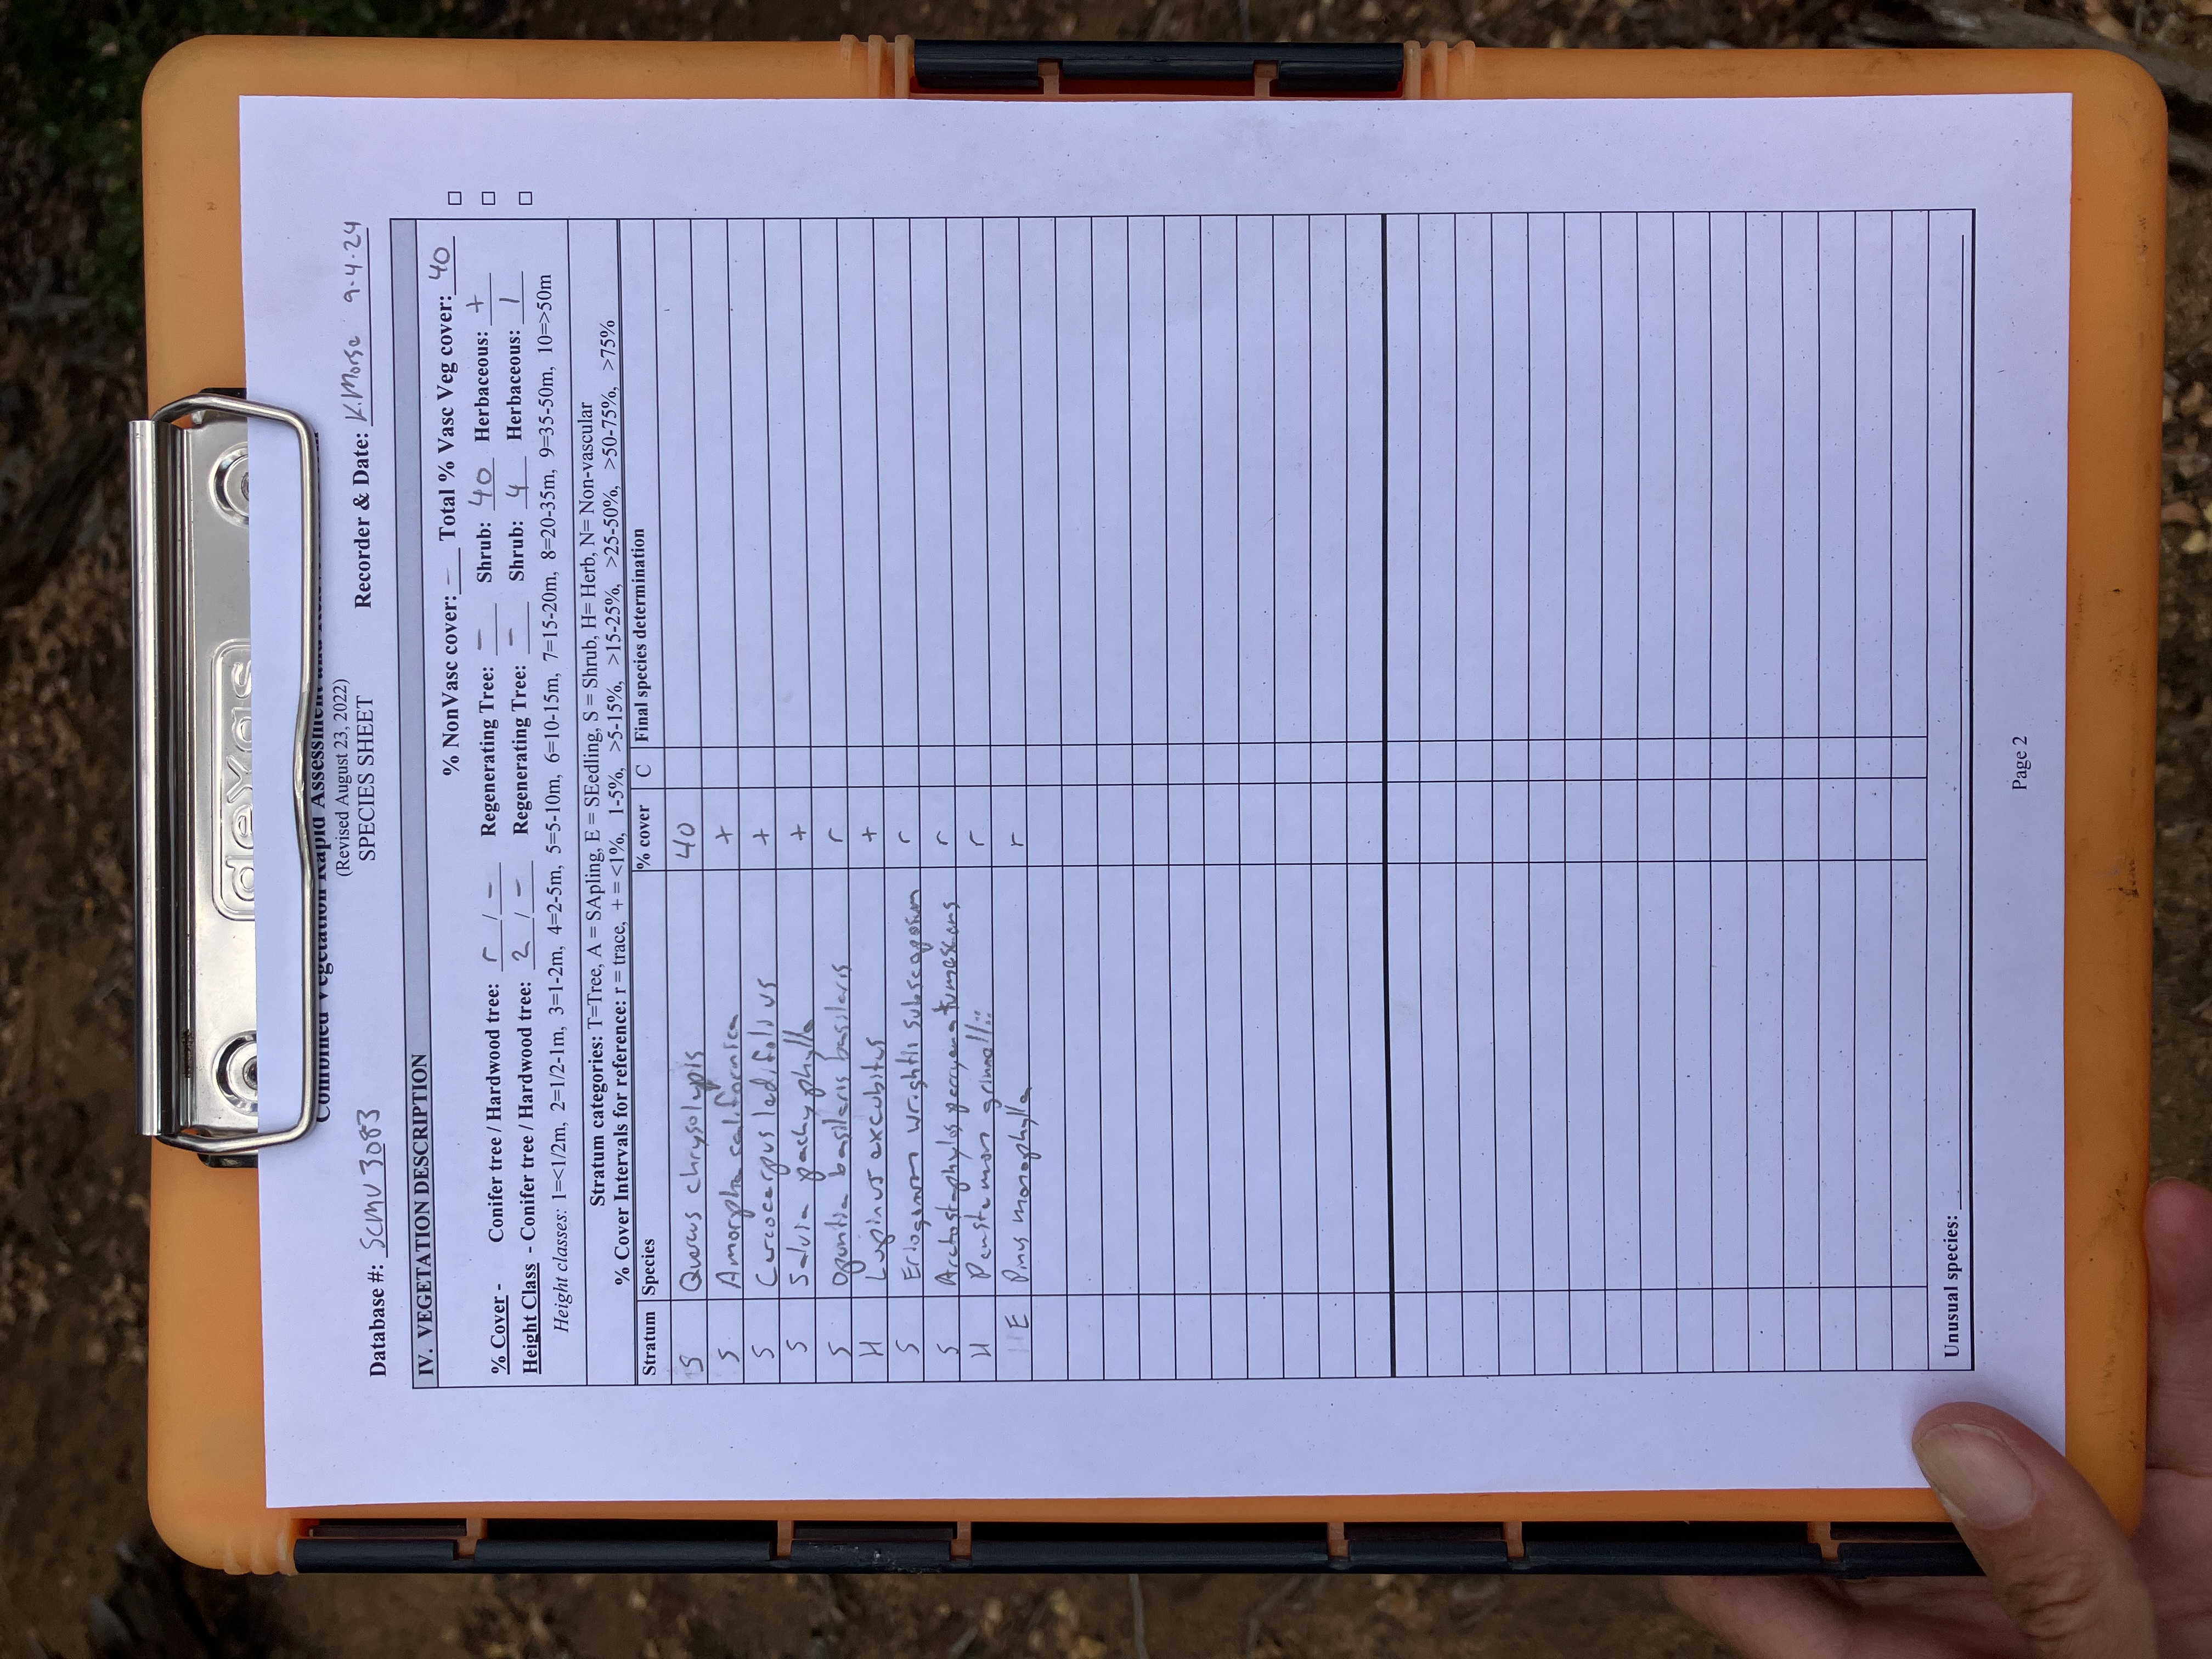 dexas
Combined Vegetation Rapid Assessment and
(Revised August 23, 2022)
SPECIES SHEET
Database #: SCMV3083 Recorder & Date: K.Morse 9-4-24
IV. VEGETATION DESCRIPTION
% NonVasc cover: – Total % Vasc Veg cover: 40 □
% Cover - Conifer tree / Hardwood tree: r / – Regenerating Tree: – Shrub: 40 Herbaceous: + □
Height Class - Conifer tree / Hardwood tree: 2 / – Regenerating Tree: – Shrub: 4 Herbaceous: 1 □
Height classes: 1=<1/2m, 2=1/2-1m, 3=1-2m, 4=2-5m, 5=5-10m, 6=10-15m, 7=15-20m, 8=20-35m, 9=35-50m, 10=>50m
Stratum categories: T=Tree, A = SApling, E = SEedling, S = Shrub, H= Herb, N= Non-vascular
% Cover Intervals for reference: r = trace, + = <1%, 1-5%, >5-15%, >15-25%, >25-50%, >50-75%, >75%
Stratum Species % cover C Final species determination
S Quercus chrysolepis 40
S Amorpha californica +
S Cercocarpus ledifolius +
S Salvia pachyphylla +
S Opuntia basilaris basilaris r
H Lupinus excubitus +
S Eriogonum wrightii subscaposum r
S Arctostaphylos parryana tumescens r
H Penstemon grinnellii r
E Pinus monophylla r
Unusual species:
Page 2